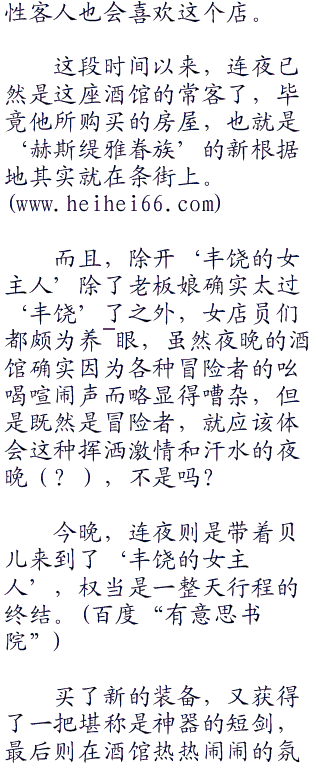 性客人也会喜欢这个店。
这段时间以来，连夜已
然是这座酒馆的常客了，毕
竟他所购买的房屋，也就是
‘赫斯缇雅眷族’的新根据
地其实就在条街上。
(www.heihei66.com)
而且，除开‘丰饶的女
主人’除了老板娘确实太过
‘丰饶’了之外，女店员们
都颇为养¯眼，虽然夜晚的酒
馆确实因为各种冒险者的吆
喝喧闹声而略显得嘈杂，但
是既然是冒险者，就应该体
会这种挥洒激情和汗水的夜
晚（？），不是吗？
今晚，连夜则是带着贝
儿来到了‘丰饶的女主
人’，权当是一整天行程的
终结。(百度“有意思书
院”)
买了新的装备，又获得
了一把堪称是神器的短剑，
最后则在酒馆热热闹闹的氛